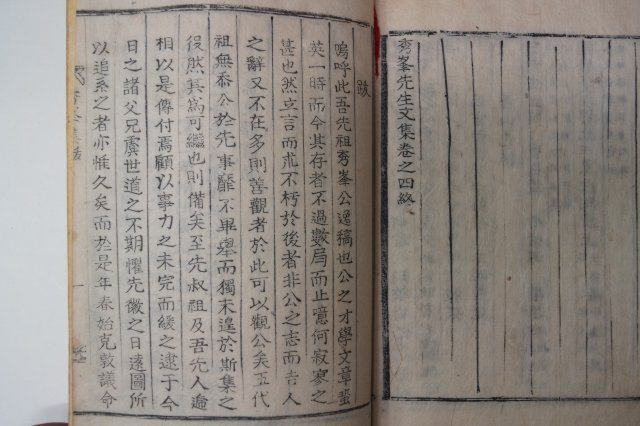 秀峯先生文集卷之四終
跋
嗚呼此吾先祖秀峯公逸稿也公之才學文章蜚
英一時而今其存者不過數局而止噫何寂寥之
甚也然立言而求不朽於後者非公之志而吉人
之辭又不在多則善觀者於此可以觀公矣五代
祖無忝公於先事靡不畢擧而獨未遑於斯集之
役然箕爲可繼也則備矣至先叔祖及吾先人遹
相以是傳付焉顧以事力之未完而緩之逮于今
日之諸父兄虞世道之不期懼先徽之日遠圖所
以追系之者亦惟久矣而於是年春始克敦議命
一